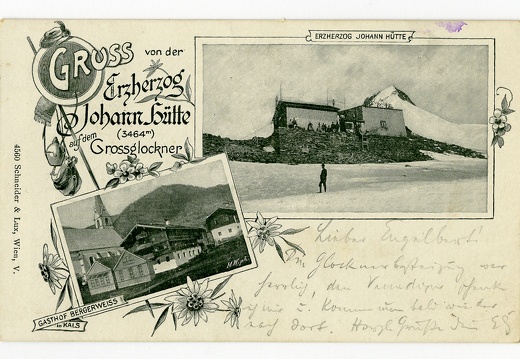 GRUSS von der
Erzherzog
Johann Hütte
(3464m)
auf dem
Grossglockner
ERZHERZOG JOHANN HÜTTE
4560 Schneider & Lux, Wien, V.
GASTHOF BERGERWEISS
in KALS
Lieber Engelbert!
Die Glocknerbesteigung war
herrlich, den
u. Kommen wieder
nach dort. Herzl. Grüße Dein